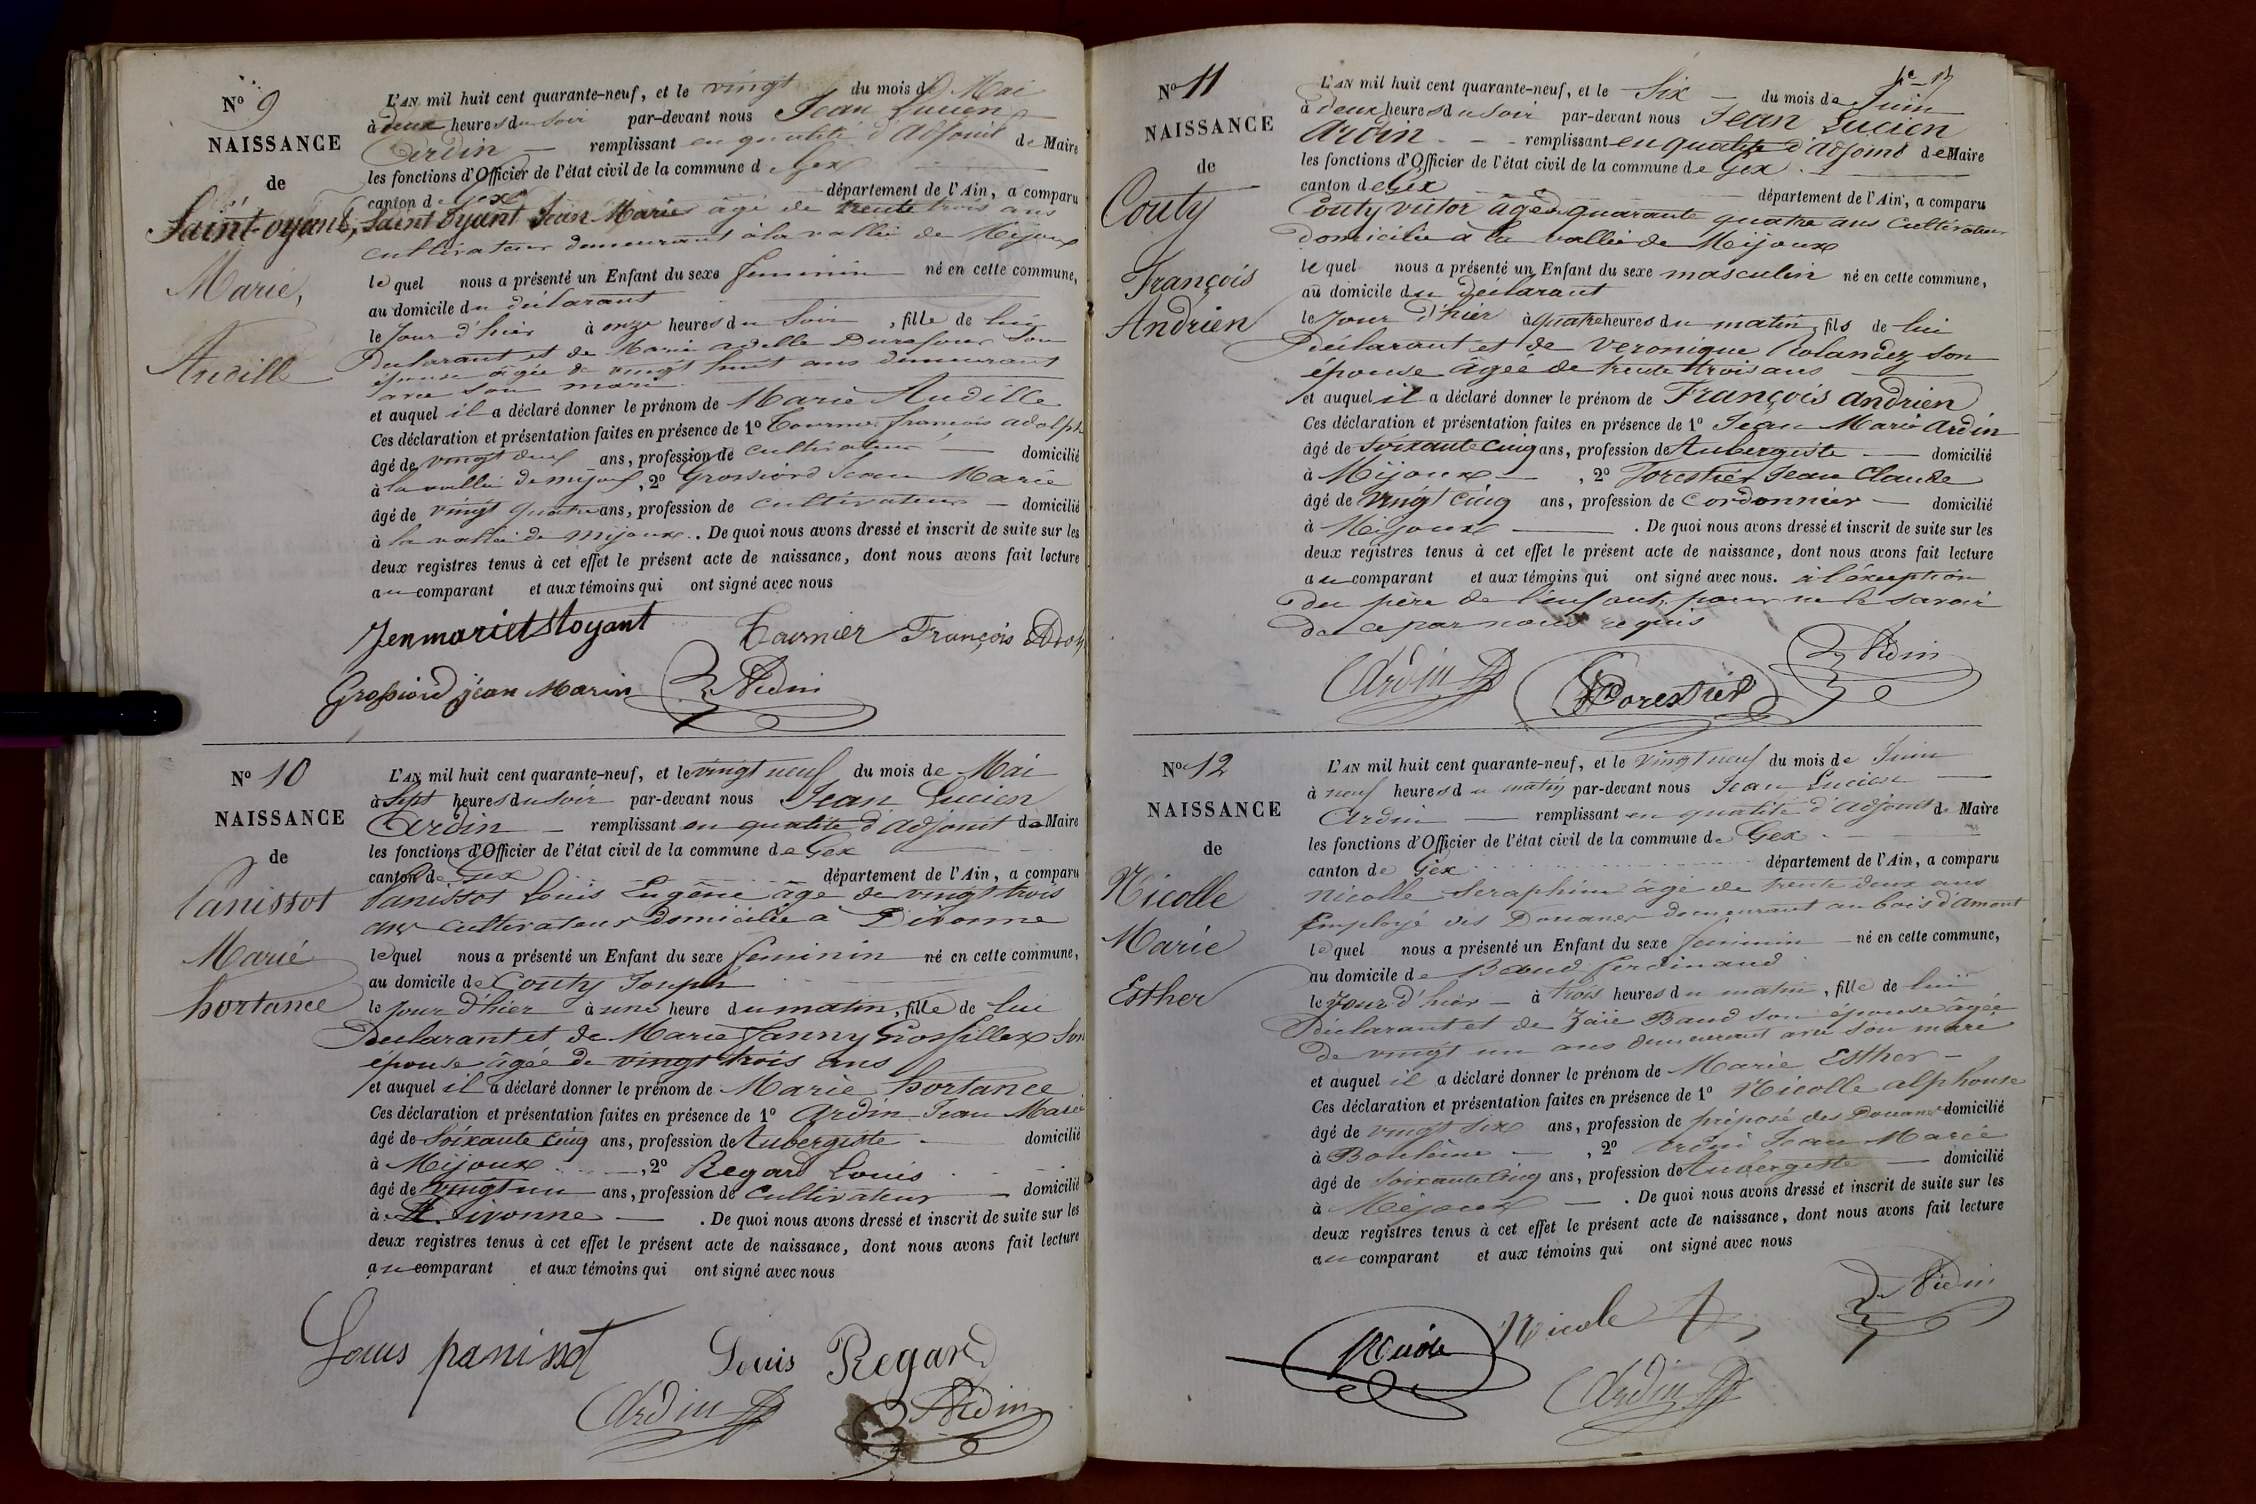 No 9
NAISSANCE
de
Saint-oyant,
Marie,
Audille
L'AN mil huit cent quarante-neuf, et le vingt du mois de Mai
à deux heures du soir par-devant nous Jean Lucien
Ardin — remplissant en qualité d'adjoint de Maire
les fonctions d'Officier de l'état civil de la commune de Gex
canton de Gex département de l'Ain, a comparu
Saint oyant Jean Marie âgé de trente trois ans
cultivateur demeurant à la vallée de Mijoux
le quel nous a présenté un Enfant du sexe feminin né en cette commune,
au domicile du déclarant
le jour d'hier à onze heures du soir, fille de lui
Déclarant et de Marie adelle son
épouse âgée de vingt huit ans demeurant
avec son mari
et auquel il a déclaré donner le prénom de Marie Audille
Ces déclaration et présentation faites en présence de 1º Tournier françois adolph
âgé de vingt deux ans, profession de cultivateur — domicilié
à la vallée de mijoux, 2º Grossiord Jean Marie
âgé de vingt quatre ans, profession de cultivateur — domicilié
à la vallée de mijoux. De quoi nous avons dressé et inscrit de suite sur les
deux registres tenus à cet effet le présent acte de naissance, dont nous avons fait lecture
au comparant et aux témoins qui ont signé avec nous
Jenmariet Stoyant Tournier François
Grossiord jean Marie Ardin
No 10
NAISSANCE
de
Panissot
Marie
hortance
L'AN mil huit cent quarante-neuf, et le vingt neuf du mois de Mai
à Sept heures du soir par-devant nous Jean Lucien
Ardin — remplissant en qualité d'adjoint de Maire
les fonctions d'Officier de l'état civil de la commune de Gex
canton de Gex département de l'Ain, a comparu
Panissot Louis Eugène âgé de vingt trois
ans cultivateur domicilié à Divonne
le quel nous a présenté un Enfant du sexe feminin né en cette commune,
au domicile de Couty Joseph
le jour d'hier à une heure du matin, fille de lui
Declarant et de Marie fanny Grosfillex son
épouse âgée de vingt trois ans
et auquel il a déclaré donner le prénom de Marie hortance
Ces déclaration et présentation faites en présence de 1º Ardin Jean Marie
âgé de Soixante cinq ans, profession de Aubergiste — domicilié
à Mijoux —, 2º Regard Louis
âgé de vingt un ans, profession de cultivateur — domicilié
à Divonne — . De quoi nous avons dressé et inscrit de suite sur les
deux registres tenus à cet effet le présent acte de naissance, dont nous avons fait lecture
au comparant et aux témoins qui ont signé avec nous
Louis panissot Louis Regard
Ardin Ardin
No 11
NAISSANCE
de
Couty
François
Andrien
L'AN mil huit cent quarante-neuf, et le Six — du mois de Juin
à deux heures du soir par-devant nous Jean Lucien
Ardin - - - remplissant en qualité d'adjoint de Maire
les fonctions d'Officier de l'état civil de la commune de Gex
canton de Gex département de l'Ain, a comparu
Couty victor âgé de quarante quatre ans cultivateur
domicilié à la vallée de Mijoux
le quel nous a présenté un Enfant du sexe masculin né en cette commune,
au domicile du déclarant
le jour d'hier à quatre heures du matin, fils de lui
Déclarant et de veronique Rolandez son
épouse âgée de trente trois ans
et auquel il a déclaré donner le prénom de François andrien
Ces déclaration et présentation faites en présence de 1º Jean Marie Ardin
âgé de soixante cinq ans, profession de Aubergiste — domicilié
à Mijoux —, 2º forestier Jean Claude
âgé de vingt cinq ans, profession de cordonnier — domicilié
à Mijoux — . De quoi nous avons dressé et inscrit de suite sur les
deux registres tenus à cet effet le présent acte de naissance, dont nous avons fait lecture
au comparant et aux témoins qui ont signé avec nous. à l'exception
du père de l'enfant, pour ne le savoir
de ce par nous requis
Ardin Forestier Ardin
No 12
NAISSANCE
de
Nicolle
Marie
Esther
L'AN mil huit cent quarante-neuf, et le vingt neuf du mois de Juin
à neuf heures du matin par-devant nous Jean Lucien —
Ardin — remplissant en qualité d'adjoint de Maire
les fonctions d'Officier de l'état civil de la commune de Gex
canton de Gex département de l'Ain, a comparu
Nicolle Seraphim âgé de trente deux ans
Employé des Douanes demeurant au bois d'amont
le quel nous a présenté un Enfant du sexe feminin né en cette commune,
au domicile de Baud ferdinand
le jour d'hier — à trois heures du matin, fille de lui
Déclarant et de Zaïe Baud son épouse âgée
de vingt un ans demeurant avec son mari
et auquel il a déclaré donner le prénom de Marie Esther —
Ces déclaration et présentation faites en présence de 1º Nicolle alphonse
âgé de vingt six ans, profession de préposé des Douanes domicilié
à —, 2º Ardin Jean Marie
âgé de soixante cinq ans, profession de Aubergiste — domicilié
à Mijoux — . De quoi nous avons dressé et inscrit de suite sur les
deux registres tenus à cet effet le présent acte de naissance, dont nous avons fait lecture
au comparant et aux témoins qui ont signé avec nous
Nicole Nicole Ardin
Ardin